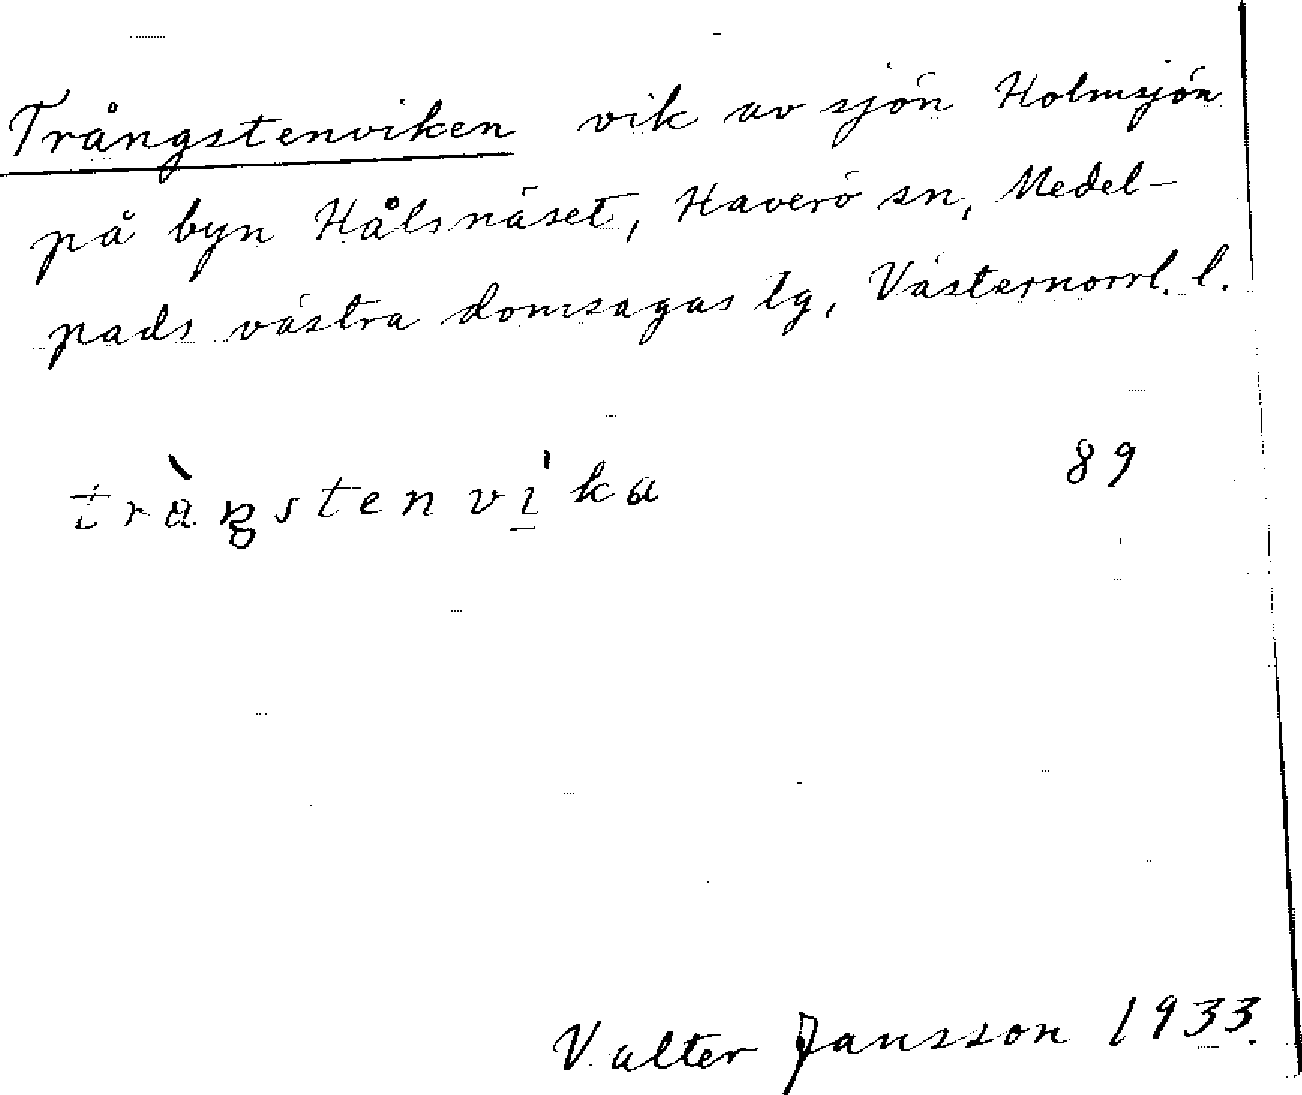 Trångstenviken vik av sjön Holmsjön
på byn Hålsnäset, Haverö sn, Medel-
pads västra domsagas tg, Västernorrl. l.
tràŋstenvi̲ka 89
Valter Jansson 1933.